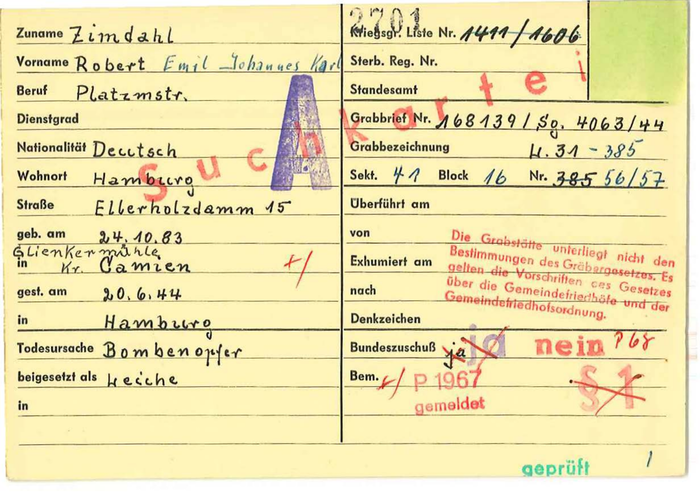 Zuname Zimdahl
Vorname Robert Emil Johannes Karl
Beruf Platzmstr.
Dienstgrad
Nationalität Deutsch
Wohnort Hamburg
Straße Ellerholzdamm 15
geb. am 24.10.83
Glienkermühle
in Kr. Camien
gest. am 20.6.44
in Hamburg
Todesursache Bombenopfer
beigesetzt als Leiche
in
A
Suchkartei
2701
Kriegsgr. Liste Nr. 1411/1606
Sterb. Reg. Nr.
Standesamt
Grabbrief Nr. 168139/Sg. 4063/44
Grabbezeichnung H.31-385
Sekt. 41 Block 16 Nr. 385 56/57
Überführt am
von
Exhumiert am
nach
Denkzeichen
Die Grabstätte unterliegt nicht den
Bestimmungen des Gräbergesetzes. Es
gelten die Vorschriften des Gesetzes
über die Gemeindefriedhöfe und der
Gemeindefriedhofsordnung.
Bundeszuschuß ja ja nein P68
Bem. P 1967
gemeldet
§ 1
geprüft
1